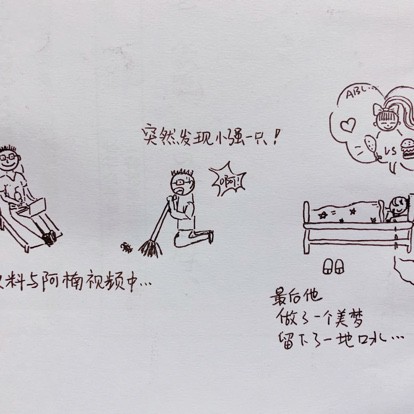 突然发现小强一只！
啊！
ABC...
VS
料与阿楠视频中...
最后他
做了一个美梦
留下了一地口水...